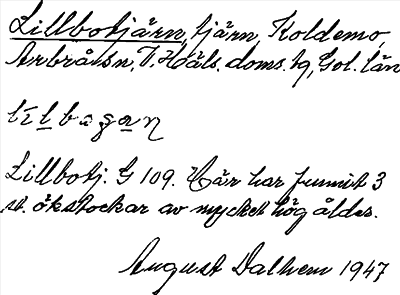 Lillbotjärn, tjärn, Koldemo,
Arbrå sn, V. Häls. doms. tg, Gol. län
Lillbotj. G 109. Här har funnits 3
st. ökstockar av mycket hög ålder.
August Dalhem 1947